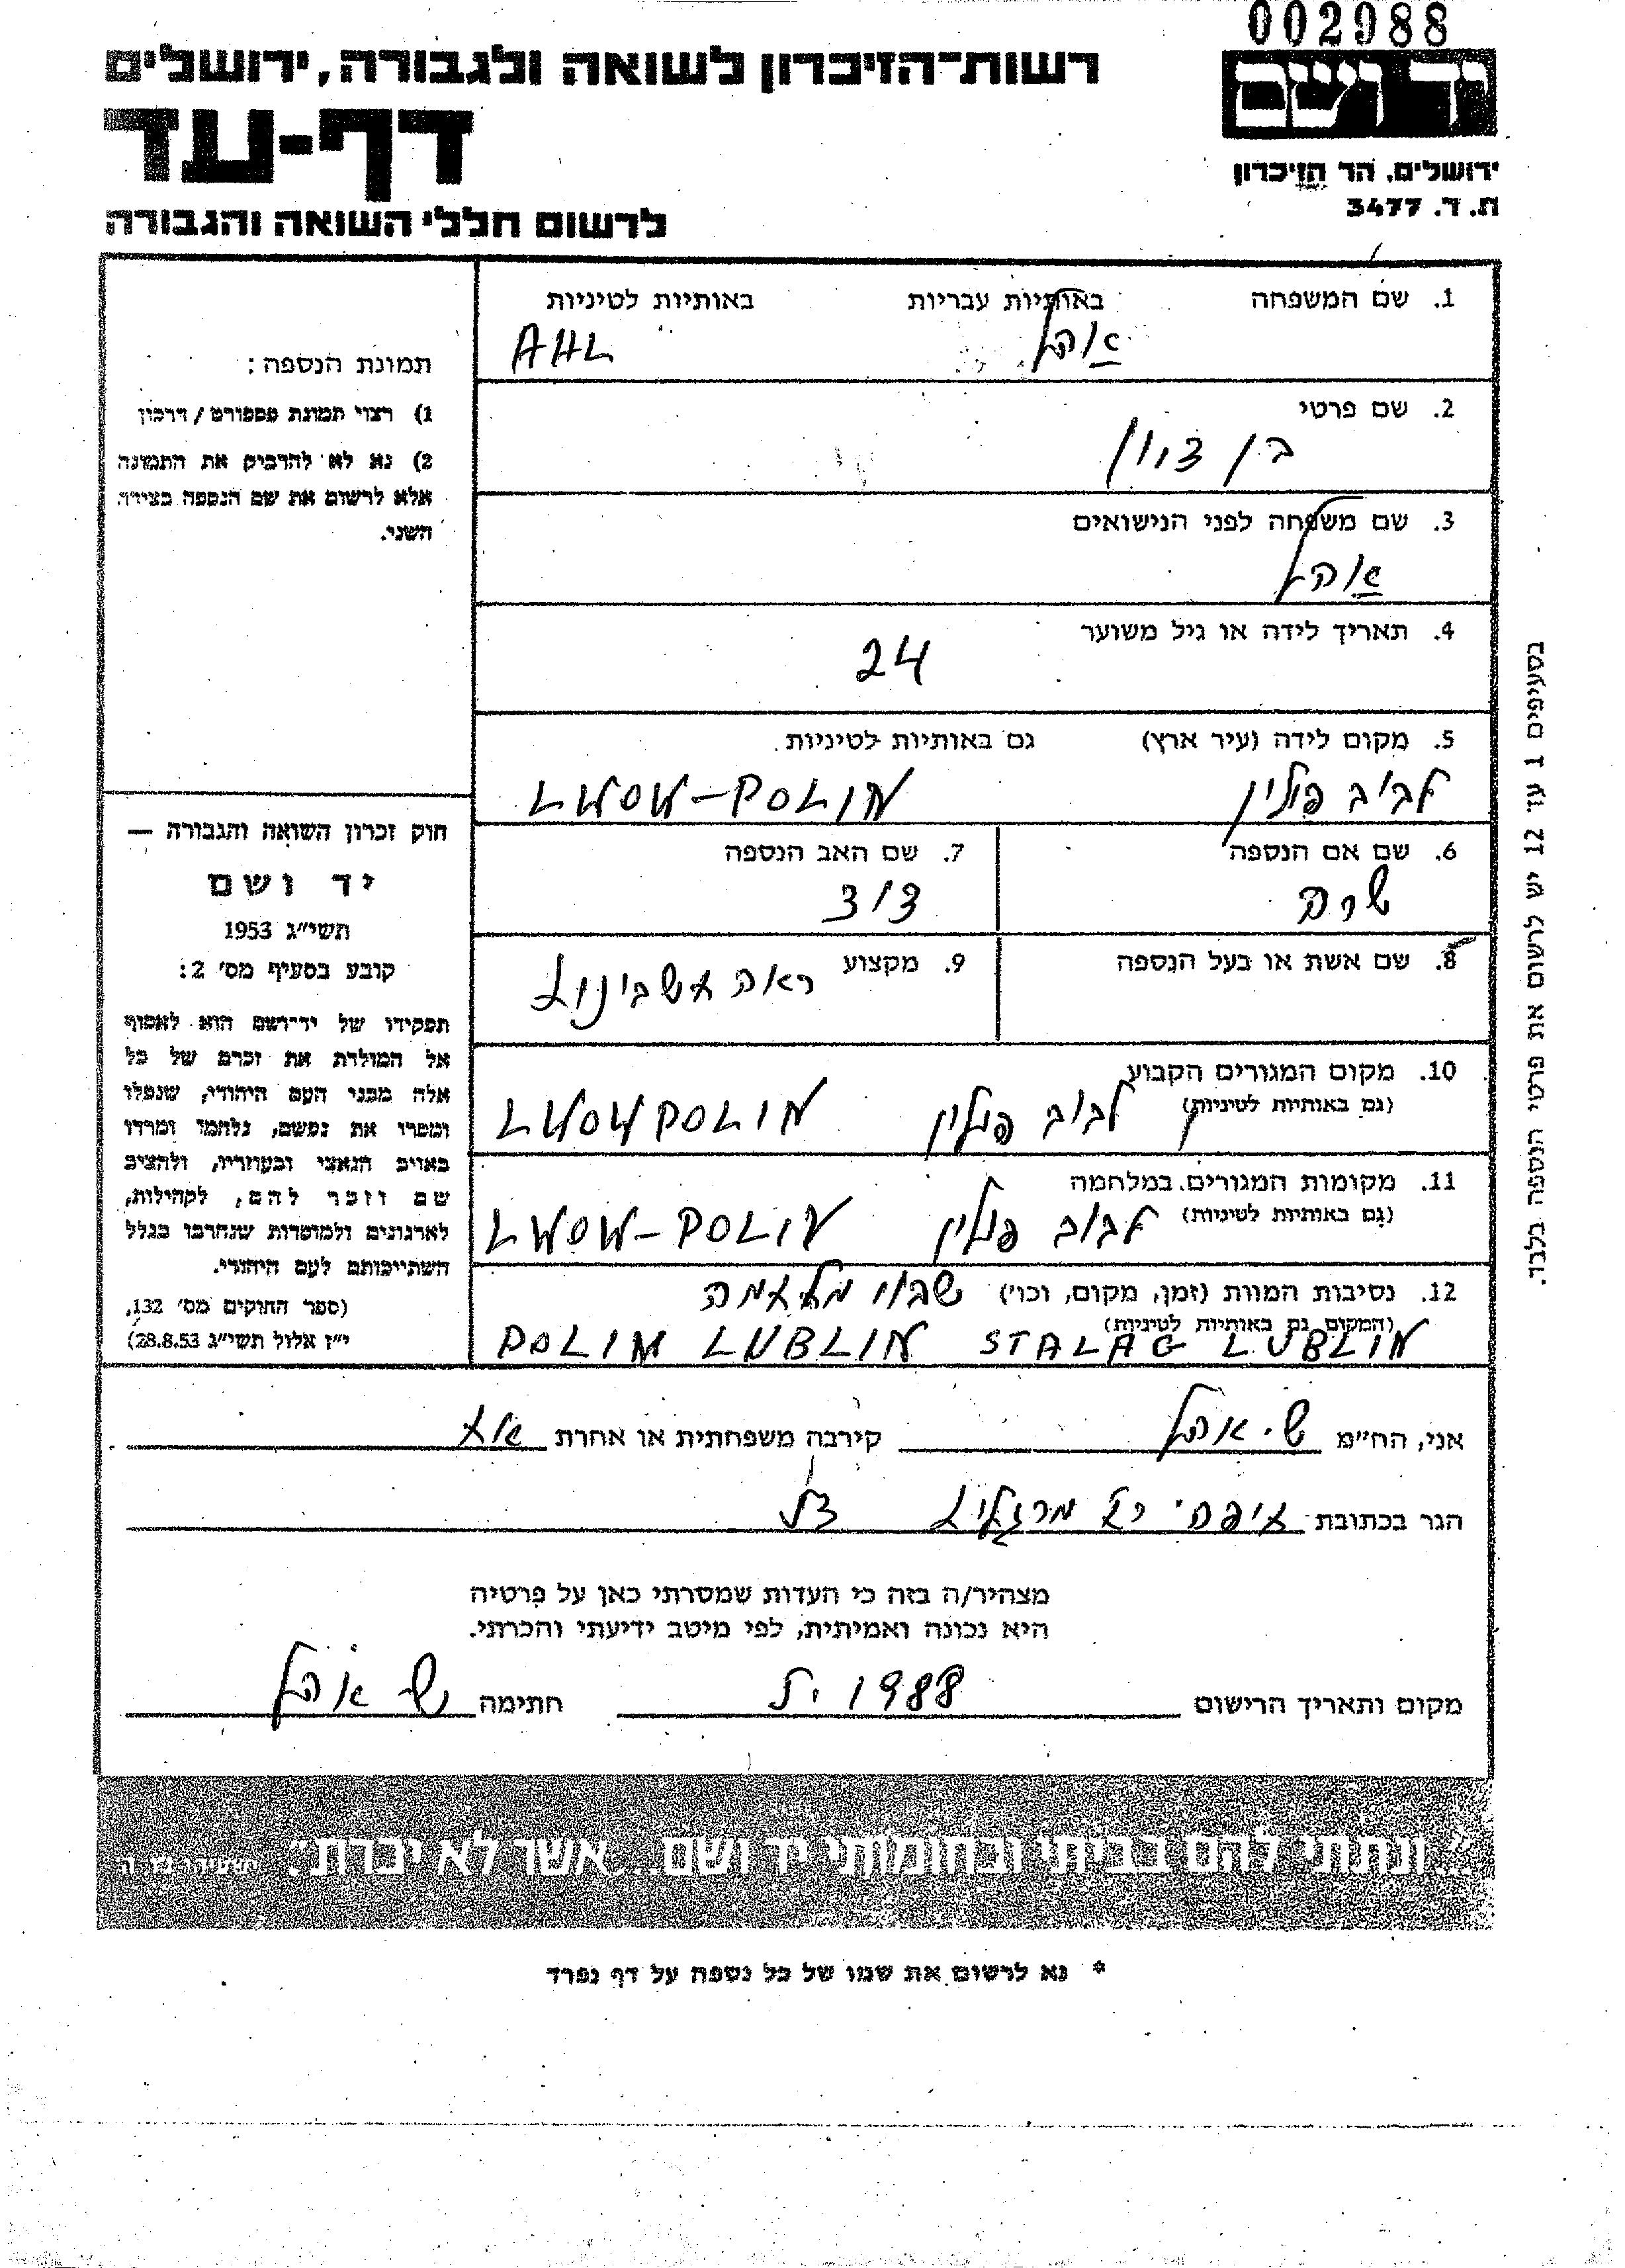 002988
רשות-הזיכרון לשואה ולגבורה, ירושלים
יד ושם
דף-עד
ירושלים, הר הזיכרון
ת. ד. 3477
לרשום חללי השואה והגבורה
1. שם המשפחה באותיות עבריות באותיות לטיניות
אהל AHL
2. שם פרטי
בן ציון
3. שם משפחה לפני הנישואים
אהל
4. תאריך לידה או גיל משוער
24
5. מקום לידה (עיר ארץ) גם באותיות לטיניות
לבוב פולין LWOW-POLIN
6. שם אם הנספה
שרה
7. שם האב הנספה
8. שם אשת או בעל הנספה
9. מקצוע ראה חשבונות
10. מקום המגורים הקבוע
(גם באותיות לטיניות)
לבוב פולין LWOW POLIN
11. מקומות המגורים במלחמה
(גם באותיות לטיניות)
לבוב פולין LWOW-POLIN
12. נסיבות המוות (זמן, מקום, וכו') שבוי מלחמה
(המקום גם באותיות לטיניות)
POLIN LUBLIN STALAG LUBLIN
תמונת הנספה:
1) רצוי תמונת פספורט / דרכון
2) נא לא להדביק את התמונה
אלא לרשום את שם הנספה בצידה
השני.
חוק זכרון השואה והגבורה —
יד ושם
תשי"ג 1953
קובע בסעיף מס' 2:
תפקידו של יד-ושם הוא לאסוף
אל המולדת את זכרם של כל
אלה מבני העם היהודי, שנפלו
ומסרו את נפשם, נלחמו ומרדו
באויב הנאצי ובעוזריו, ולהציב
שם וזכר להם, לקהילות,
לארגונים ולמוסדות שנחרבו בגלל
השתייכותם לעם היהודי.
(ספר החוקים מס' 132,
י"ז אלול תשי"ג 28.8.53)
בסעיפים 1 עד 12 יש לרשום את פרטי הנספה בלבד.
אני, הח"מ ש. אהל קירבה משפחתית או אחרת אח
הגר בכתובת
מצהיר/ה בזה כי העדות שמסרתי כאן על פרטיה
היא נכונה ואמיתית, לפי מיטב ידיעתי והכרתי.
מקום ותאריך הרישום 1988 חתימה ש אהל
"...ונתתי להם בביתי ובחומותי יד ושם... אשר לא יכרת". ישעיהו נו, ה
* נא לרשום את שמו של כל נספה על דף נפרד